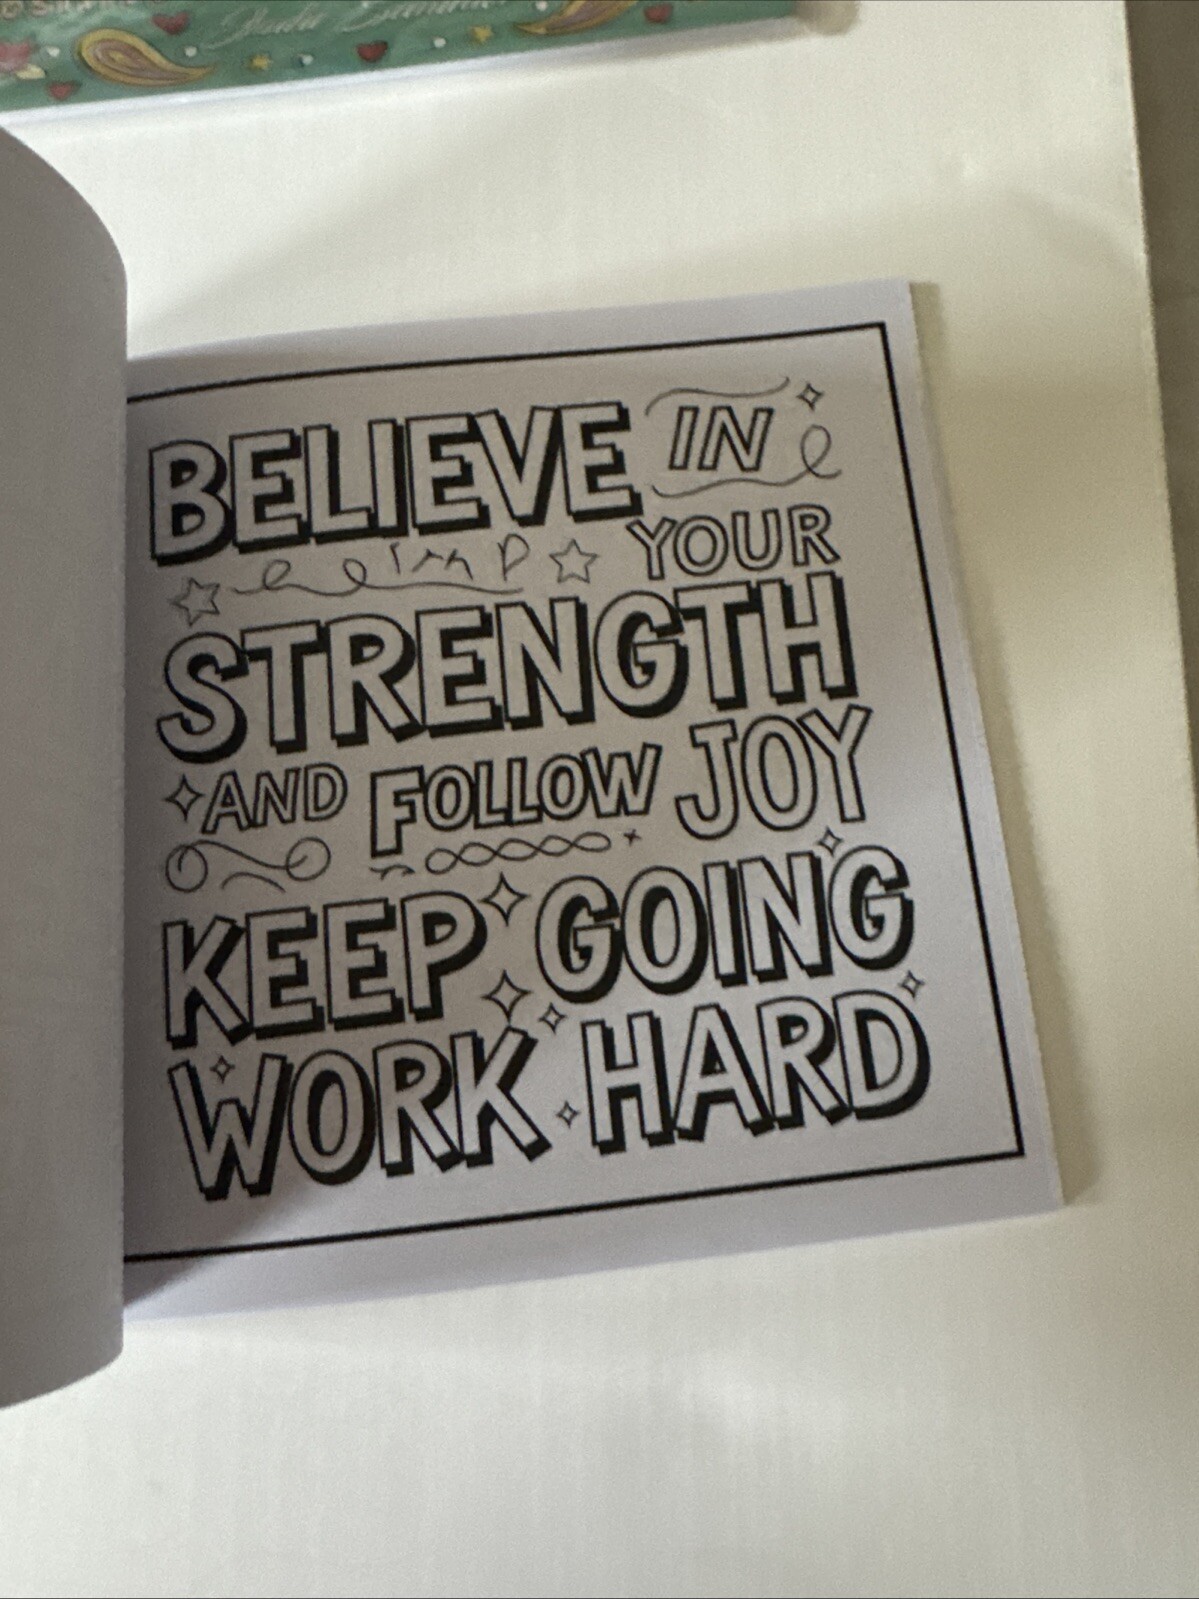 BELIEVE IN
YOUR
STRENGTH
AND FOLLOW JOY
KEEP GOING
WORK HARD